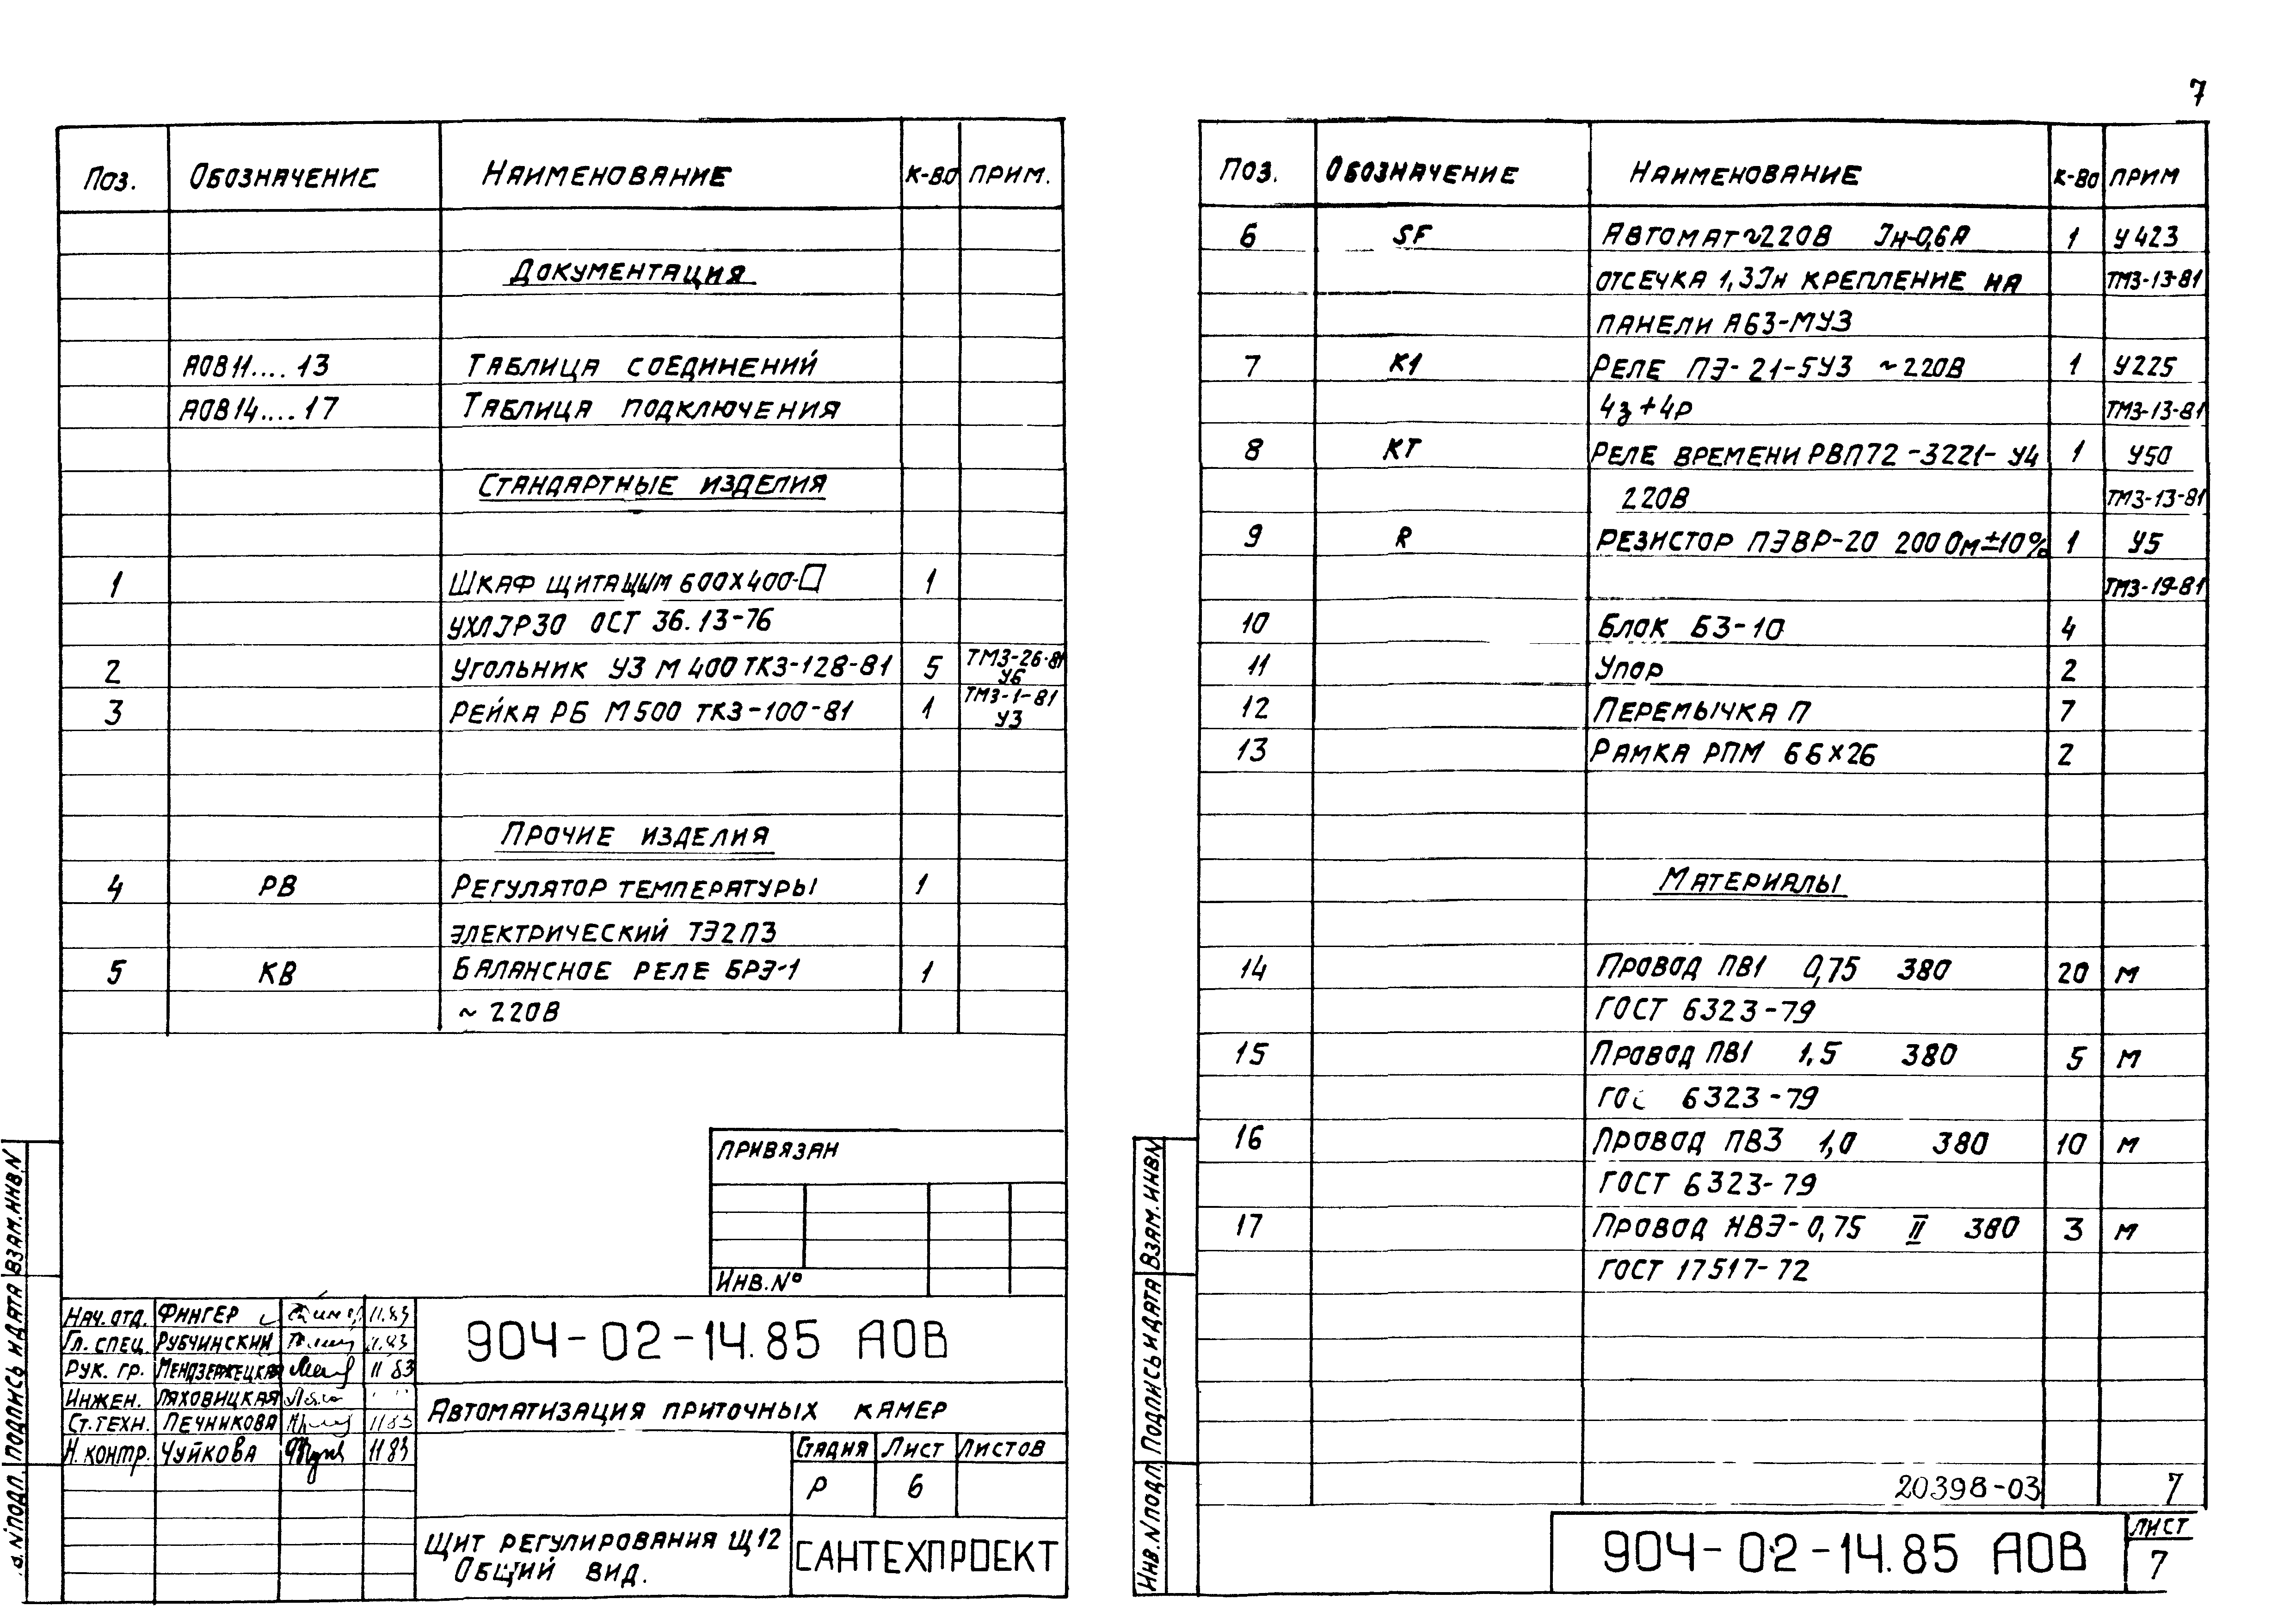 7
Поз. Обозначение Наименование к-во прим.
Документация
АОВ11....13 Таблица соединений
АОВ14....17 Таблица подключения
Стандартные изделия
1 Шкаф щита ЩШМ 600х400-□ 1
УХЛ3Р30 ОСТ 36.13-76
2 Угольник УЗ М400 ТК3-128-81 5 ТМ3-26-81 У6
3 Рейка РБ М500 ТК3-100-81 1 ТМ3-1-81 У3
Прочие изделия
4 РВ Регулятор температуры 1
электрический ТЭ2П3
5 КВ Балансное реле БРЭ-1 1
~ 220В
Привязан
Инв.№
Нач. отд. Фингер 11.83
Гл. спец. Рубчинский 11.83
Рук. гр. Мендзержецкая 11 83
Инжен. Ляховицкая
Ст.техн. Печникова 11 83
Н. контр. Чуйкова 11 83
904-02-14.85 АОВ
Автоматизация приточных камер
Стадия Лист Листов
Р 6
Щит регулирования Щ12
Общий вид.
САНТЕХПРОЕКТ
Взам.инв.N
Подпись и дата
N подл.
Поз. Обозначение Наименование к-во прим
6 SF Автомат ~220В Iн-0,6А 1 У423
отсечка 1,3Iн крепление на ТМ3-13-81
панели А63-МУ3
7 К1 Реле ПЭ-21-5У3 ~220В 1 У225
4з+4р ТМ3-13-81
8 КТ Реле времени РВП72-3221-У4 1 У50
220В ТМ3-13-81
9 R Резистор ПЭВР-20 200 Ом±10% 1 У5
ТМ3-19-81
10 Блок БЗ-10 4
11 Упор 2
12 Перемычка П 7
13 Рамка РПМ 66х26 2
Материалы
14 Провод ПВ1 0,75 380 20 м
ГОСТ 6323-79
15 Провод ПВ1 1,5 380 5 м
ГОС 6323-79
16 Провод ПВ3 1,0 380 10 м
ГОСТ 6323-79
17 Провод НВЭ-0,75 II 380 3 м
ГОСТ 17517-72
20398-03 7
904-02-14.85 АОВ
Лист
7
Взам.инв.N
Подпись и дата
Инв.N подл.